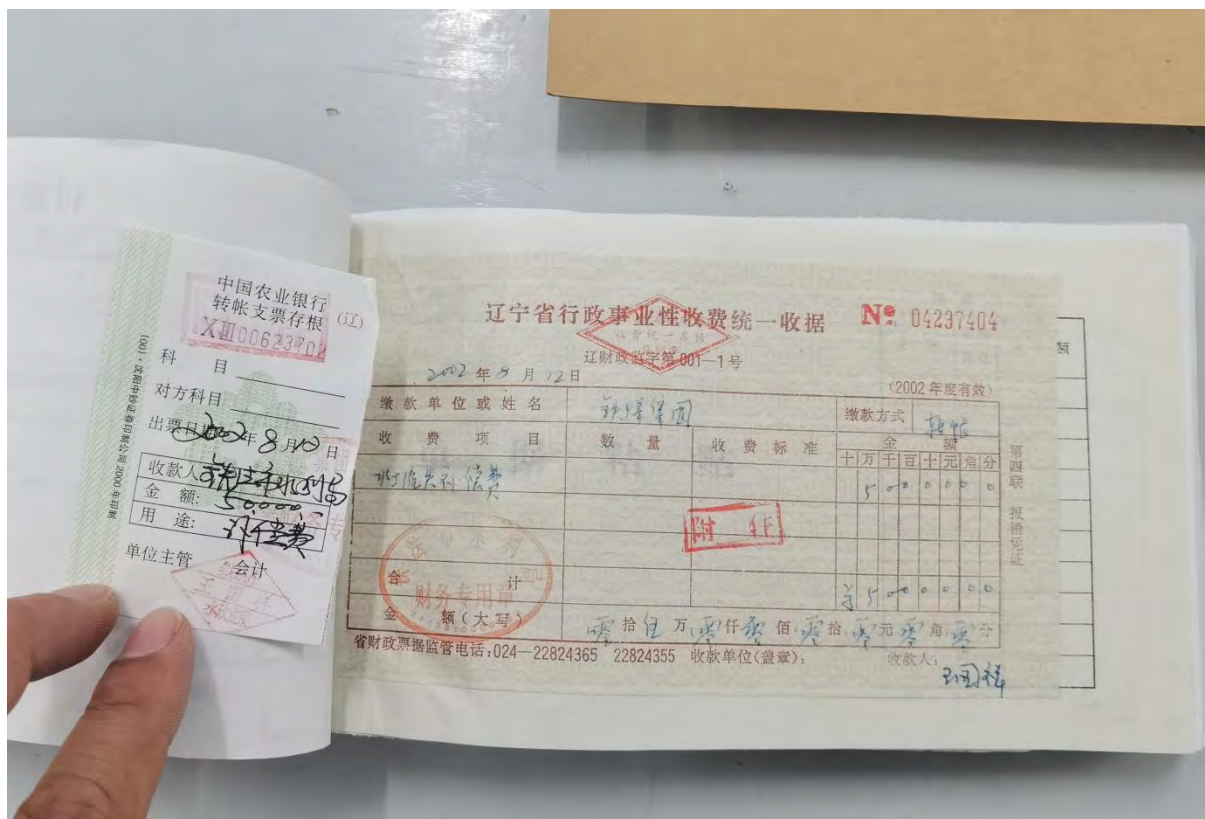 中国农业银行
转帐支票存根 (辽)
XⅢ00623702
科 目
对方科目
出票日期2002年8月10日
收款人:
金 额: 50,000.
用 途:
单位主管 会计
辽宁省行政事业性收费统一收据 № 04237404
辽财政监字第001—1号
2002年8月12日 (2002年度有效)
缴款单位或姓名 铁煤集团 缴款方式 转帐
收费项目 数量 收费标准 金额
十万千百十元角分
5 0 0 0 0 0 0
附件
合计 5 0 0 0 0 0 0
财务专用章
金额(大写) 零拾伍万零仟零佰零拾零元零角零分
省财政票据监管电话:024—22824365 22824355 收款单位(盖章): 收款人:
第四联 报销凭证
额